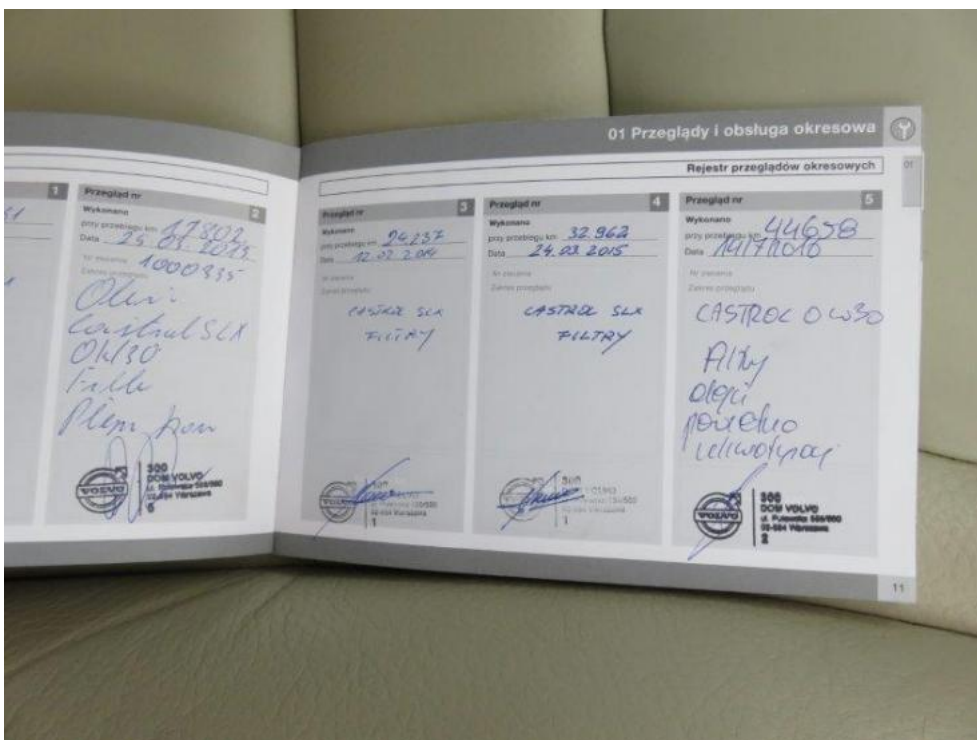 01 Przeglądy i obsługa okresowa
Rejestr przeglądów okresowych
01
1
Przegląd nr 2
Wykonano
przy przebiegu km 17802
Data 25.01.2013
Nr zlecenia 1000335
Zakres przeglądu
Olej
Castrol SLX
0W30
Filtr
Płyn ham
VOLVO
300
DOM VOLVO
ul. Puławska
02-884 Warszawa
6
Przegląd nr 3
Wykonano
przy przebiegu km 24237
Data 12.02.2014
Nr zlecenia
Zakres przeglądu
CASTROL SLX
FILTRY
02-884 Warszawa
1
Przegląd nr 4
Wykonano
przy przebiegu km 32962
Data 24.02.2015
Nr zlecenia
Zakres przeglądu
CASTROL SLX
FILTRY
1
Przegląd nr 5
Wykonano
przy przebiegu km 44658
Data 14/7/2016
Nr zlecenia
Zakres przeglądu
CASTROL 0W30
VOLVO
300
DOM VOLVO
ul. Puławska
02-884 Warszawa
2
11